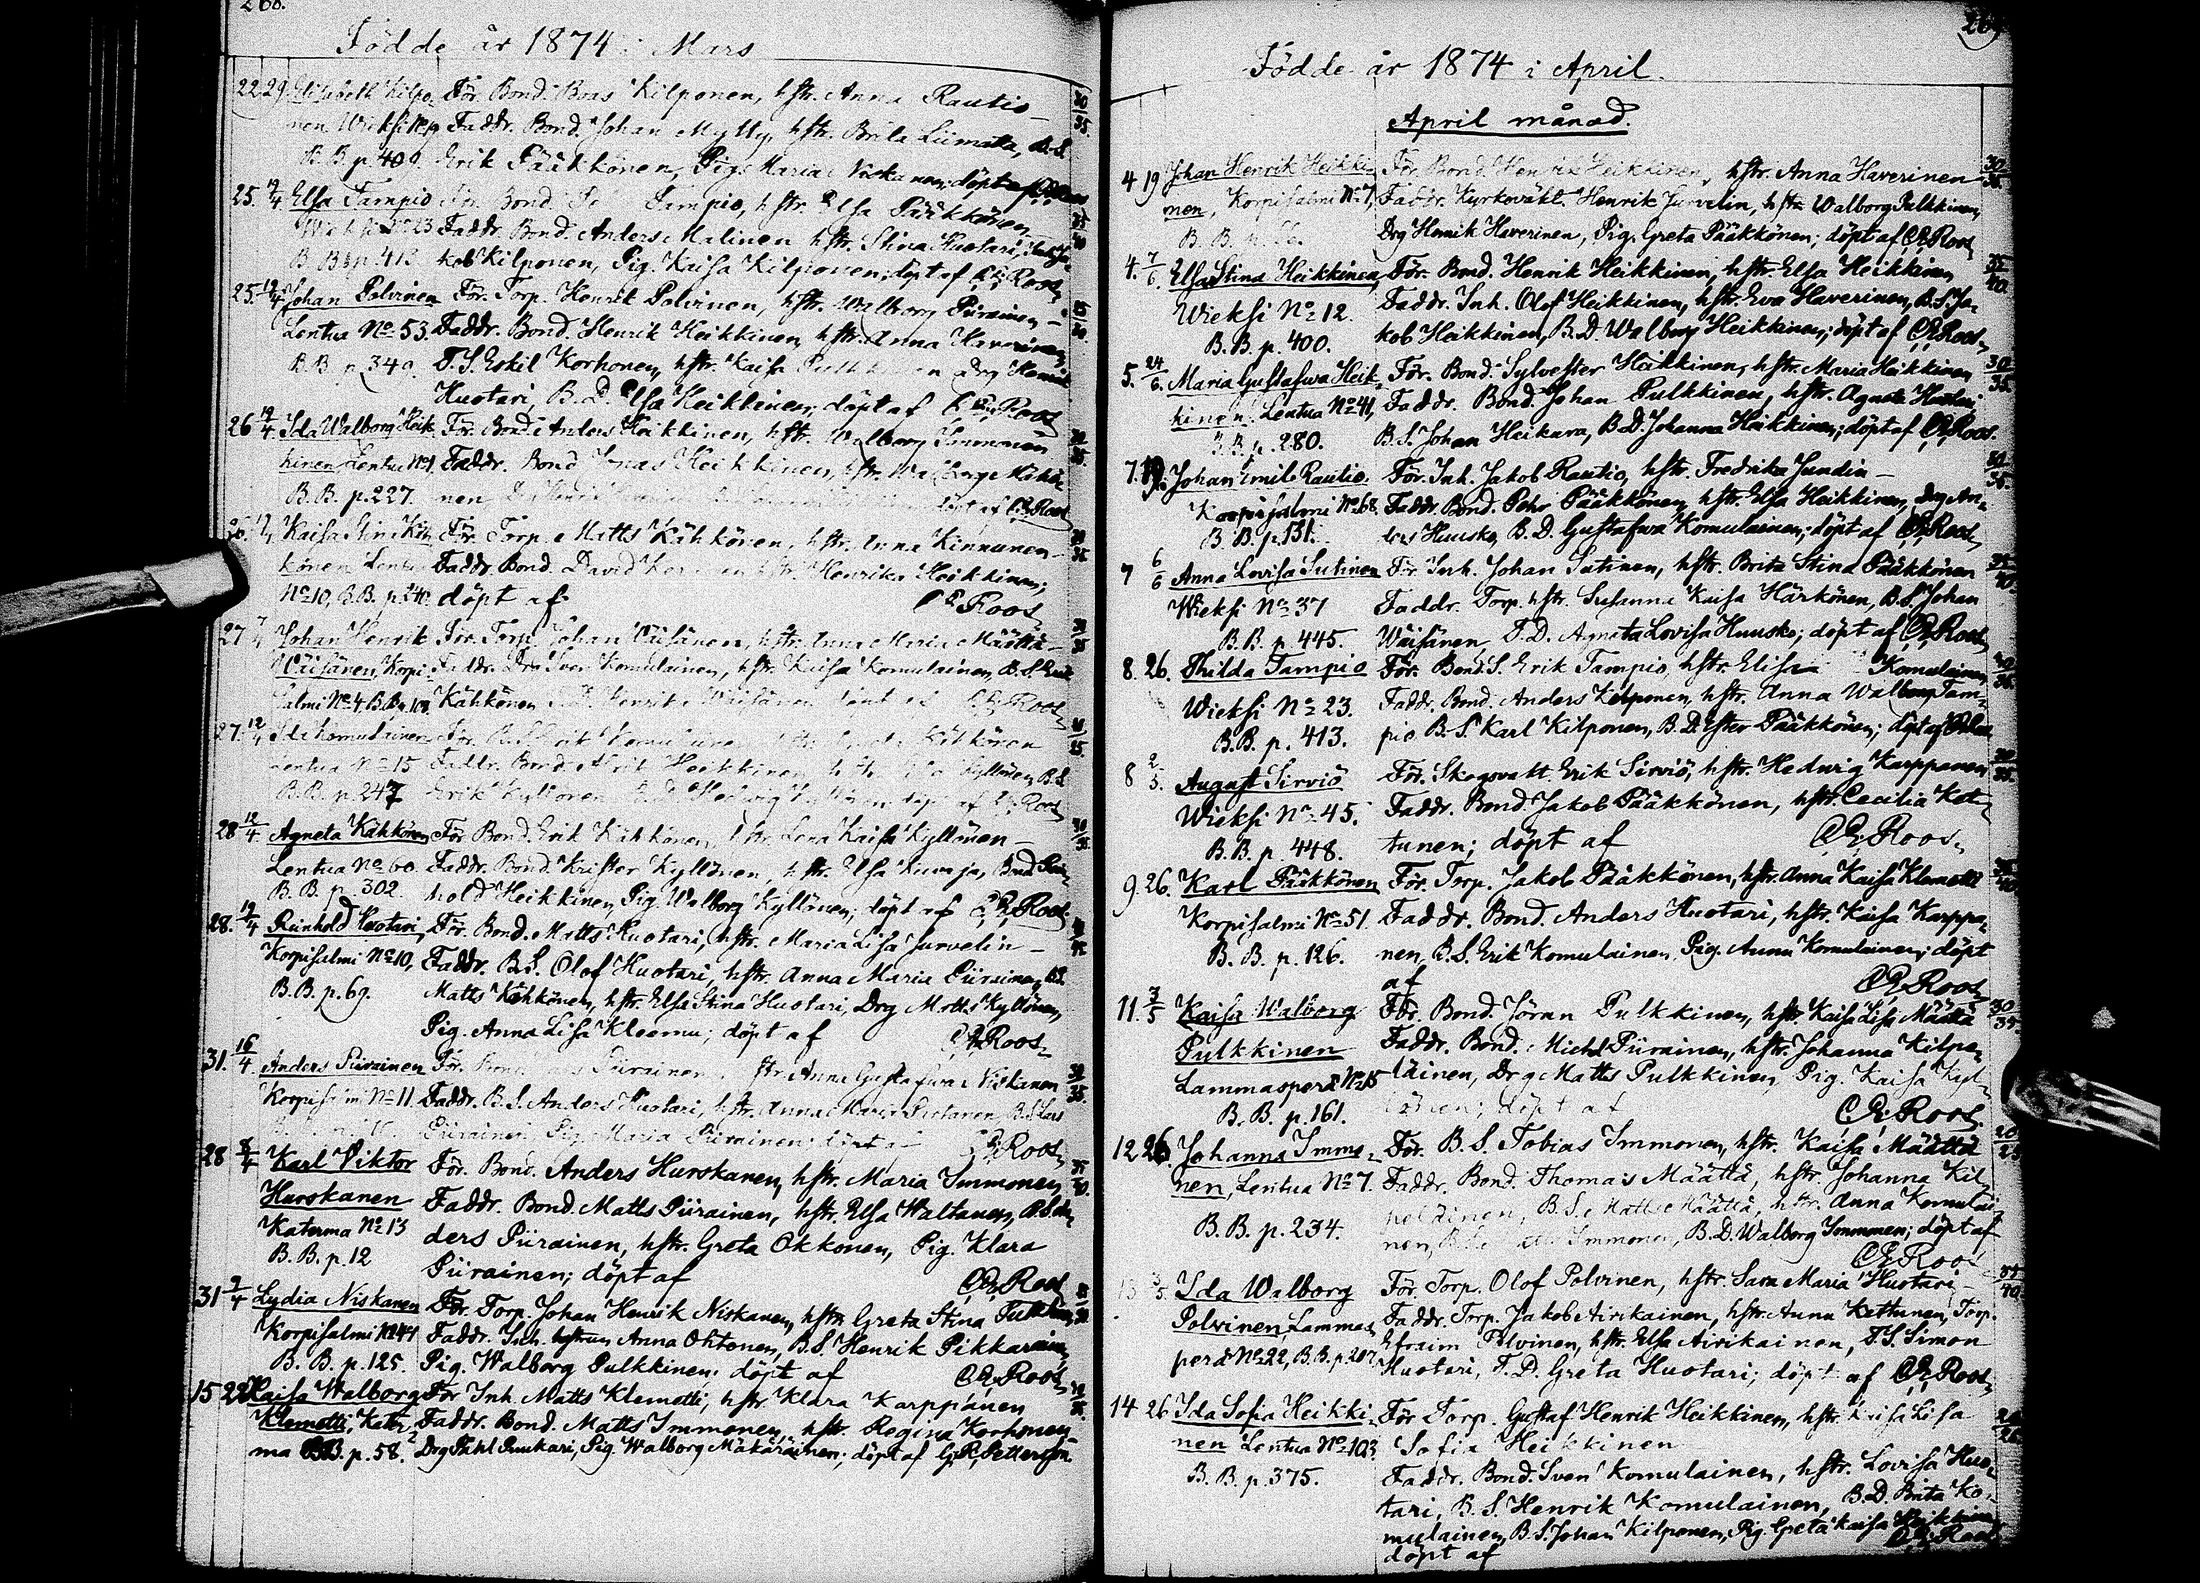 268.
Födde år 1874 i Mars
22. 29. Elisabeth Kilpo- För. Bond. Boas Kilponen, hstr. Anna Rautio 30/35.
nen Wieksi Faddr. Bond. Johan Mylly, hstr. Brita Liimatta, B.S.
B.B. p. 409. Erik Pääkkönen, Pig. Maria döpt af
25. 12/4 Elsa Tampio För. Bond. Tampio, hstr. Elsa Pääkkönen
No 23 Faddr. Bond. Anders Malinen hstr. Stina Huotari,
B.B. p. 412 kob Kilponen, Pig. Kaisa Kilponen; döpt af CE Roos
25. 12/4 Johan Polvinen För. Torp. Henrik Polvinen, hstr. Walborg Piirainen
Lentua No 53. Faddr. Bond. Henrik Heikkinen, hstr. Anna Haverinen,
B.B. p. 340. T.S. Eskil Korhonen, hstr. Kaisa Drg Henrik
Huotari, B.D. Elsa Heikkinen; döpt af CE Roos
26 12/4. Ida Walborg Heik- För. Bond. Anders Heikkinen, hstr. Walborg Immonen
kinen Lentua No 1. Faddr. Bond Jonas Heikkinen, hstr. Walborg
B.B. p. 227. nen döpt af CE Roos
26. Kaisa Stina Käh- För. Torp. Matts Kähkönen, hstr. Anna Kinnunen
könen Lentua Faddr. Bond. David hstr. Henrika Heikkinen;
No 10, B.B. p. 240. döpt af CE Roos
27 Johan Henrik För. Torp. Johan Väisänen, hstr. Anna Maria Määttä
Väisänen, Korpi- Faddr. Drg Sven Komulainen, hstr. Kaisa Komulainen, B.S. Erik
salmi No 4. B.B. p. Kähkönen Henrika Väisänen döpt af CE Roos
27. 12/4 Ida Komulainen För. Erik Komulainen Kähkönen
Lentua No 15 Faddr. Bond. Heikkinen, hstr. Kyllönen, B.S.
B.B. p. 247 Erik Kyllönen Hedwig Kyllönen döp. af CE Roos
28 12/4. Agneta Kähkönen För Bond. Erik Kähkönen, hstr. Lena Kaisa Kyllönen
Lentua No 60. Faddr. Bond. Krister Kyllönen, hstr. Elsa Kuwaja, Bond Rein-
B.B. p. 302. hold Heikkinen, Pig Walborg Kyllönen; döpt af CE Roos
28. 12/4 Reinhold Huotari, För. Bond. Matts Huotari, hstr. Maria Lisa Jurvelin
Korpisalmi No 10, Faddr. B.S. Olof Huotari, hstr. Anna Maria Piirainen, B.S.
B.B. p. 69. Matts Kähkönen, hstr. Elsa Stina Huotari, Drg Matts Kyllönen,
Pig. Anna Lisa Kleemu; döpt af CE Roos
31. 16/4. Anders Piirainen För. Bond. Piirainen, hstr. Anna Gustafwa Niskanen
Korpisalmi No 11. Faddr. B.S. Anders Huotari, hstr. Anna Maria B.S. Lars
Piirainen, Pig. Maria Piirainen; döpt af CE Roos
28 8/4 Karl Viktor För. Bond. Anders Hurskanen, hstr. Maria Immonen,
Hurskanen Faddr. Bond. Matts Piirainen, hstr. Elsa Waltanen, B.S. An-
Katerma No 13 ders Piirainen, hstr. Greta Okkonen, Pig. Klara
B.B. p. 12 Piirainen; döpt af CE Roos
31 9/4 Lydia Niskanen För. Torp. Johan Henrik Niskanen, hstr. Greta Stina
Korpisalmi No 44 Faddr. Inh. hstrun Anna Ohtonen, B.S. Henrik Pikkarainen,
B.B. p. 125. Pig. Walborg Pulkkinen; döpt af CE Roos
15 22 Kaisa Walborg För Inh. Matts Klemetti, hstr Klara Karppanen
Klemetti, Kater- Faddr. Bond. Matts Immonen, hstr. Regina Korhonen
ma B.B. p. 58. Drg Puukari, Pig. Walborg Mäkäräinen; döpt af G.R. Petterson.
269
Födde år 1874 i April
April månad.
4 19 Johan Henrik Heikki- För. Bond. Henrik Heikkinen, hstr. Anna Haverinen
nen, Korpisalmi No 7, Faddr. Kyrkovakt. Henrik Jurvelin, hstr. Walborg Pulkkinen,
B.B. p. Drg Henrik Haverinen, Pig. Greta Pääkkönen; döpt af CE Roos
4. 7/6. Elsa Stina Heikkinen, För. Bond. Henrik Heikkinen, hstr. Elsa Heikkinen 35/40.
Wieksi No 12. Faddr. Inh. Olof Heikkinen, hstr. Eva Haverinen, B.S. Ja-
B.B. p. 400. kob Heikkinen, B.D. Walborg Heikkinen; döpt af CE Roos
5. 24/6. Maria Gustafwa Heik- För. Bond. Sylvester Heikkinen, hstr. Maria Heikkinen 30/35.
kinen Lentua No 41, Faddr. Bond. Johan Pulkkinen, hstr. Agneta Huotari,
B.B. p. 280. B.S. Johan Heikara, B.D. Johanna Heikkinen; döpt af CE Roos.
7. 19 Johan Emil Rautio. För. Inh. Jakob Rautio, hstr. Fredrika Sundin
Korpisalmi No 68. Faddr. Bond. Pehr Pääkkönen, hstr. Elsa Heikkinen, Drg An-
B.B. p. 131. ders Huusko, B.D. Gustafwa Komulainen; döpt af CE Roos
7 6/6 Anna Lovisa Sutinen För. Inh. Johan Sutinen, hstr. Brita Stina Pääkkönen 35/40.
Wieksi No 37 Faddr. Torp. hstr. Susanna Kaisa Härkönen, B.S. Johan
B.B. p. 445. Wäisänen, T.D. Agneta Lovisa Huusko; döpt af CE Roos
8. 26. Thilda Tampio För. Bond. S. Erik Tampio, hstr. Elisa Komulainen,
Wieksi No 23. Faddr. Bond. Anders Kilponen, hstr. Anna Walborg Tam-
B.B. p. 413. pio B.S. Karl Kilponen, B.D. Ester Pääkkönen; döpt af CE Roos
8 2/5. August Sirviö För. Skogsvakt. Erik Sirviö, hstr. Hedwig Karppanen
Wieksi No 45. Faddr. Bond. Jakob Pääkkönen, hstr. Cecilia Ket-
B.B. p. 448. tunen; döpt af CE Roos
9 26. Karl Pääkkönen För. Torp. Jakob Pääkkönen, hstr. Anna Kaisa Klemetti
Korpisalmi No 51 Faddr. Bond. Anders Huotari, hstr. Kaisa Karppa-
B.B. p. 126. nen, B.S. Erik Komulainen, Pig. Anna Komulainen; döpt
af CE Roos
11. 3/5 Kaisa Walborg För. Bond. Jöran Pulkkinen, hstr. Kaisa Lisa Määttä 30/35.
Pulkkinen Faddr. Bond. Michel Piirainen, hstr. Johanna Kilpe-
Lammasperä No 15 läinen, Drg Matts Pulkkinen Pig. Kaisa Kyl-
B.B. p. 161. lönen; döpt af CE Roos
12 26. Johanna Immo- För. B.S. Tobias Immonen, hstr. Kaisa Määttä 20/25
nen, Lentua No 7. Faddr. Bond. Thomas Määttä, hstr. Johanna Kil-
B.B. p. 234. peläinen, B.S. Matts Määttä, hstr. Anna Komulai-
nen, Immonen, B.D. Walborg Immonen; döpt af
CE Roos
13 3/5 Ida Walborg För. Torp. Olof Polvinen, hstr. Sara Maria Huotari
Polvinen, Lammas- Faddr. Torp. Jakob Airikainen, hstr. Anna Kettunen, Torp.
perä No 22, B.B. p. 207. Efraim Polvinen, hstr. Elsa Airikainen, T.S. Simon
Huotari, T.D. Greta Huotari; döpt af CE Roos
14 26. Ida Sofia Heikki- För Torp. Gustaf Henrik Heikkinen, hstr. Kaisa Lisa
nen Lentua No 103 Sofia Heikkinen
B.B. p. 375. Faddr. Bond. Sven Komulainen, hstr. Lovisa Huo-
tari, B.S. Henrik Komulainen, B.D. Brita Ko-
mulainen, B.S. Johan Kilponen, Pig. Greta Kaisa Heikkinen
döpt af CE Roos